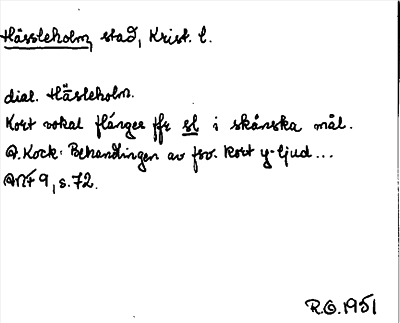 Hässleholm, stad, Krist. l.
dial. Häsleholm.
Kort vokal flänger ffr sl i skånska mål.
A. Kock: Behandlingen av fsv. kort y-ljud...
ANF 9, s. 72.
R.O. 1951